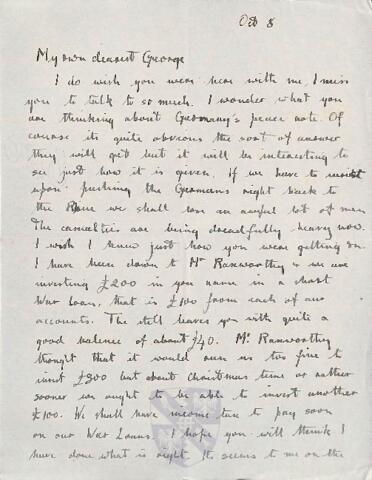 Oct 8
My own dearest George
I do wish you were hear with me I miss
you to talk to so much. I wonder what you
are thinking about Germany's peace note. Of
course its quite obvious the sort of answer
they will get but it will be interesting to
see just how it is given. If we have to insist
upon pushing the Germans right back to
the Rhine we shall lose an awful lot of men
The casualties are being dreadfully heavy now.
I wish I knew just how you were getting on.
I have been down to Mr Ranworthy & we are
investing £200 in your name in a short
War Loan, that is £100 from each of our
accounts. The still leaves you with quite a
good balance of about £40. Mr Ranworthy
thought that it would run us too fine to
invest £300 but about Christmas time or rather
sooner we ought to be able to invest another
£100. We shall have income tax to pay soon
on our War Loans. I hope you will think I
have done what is right. Its seems to me on the